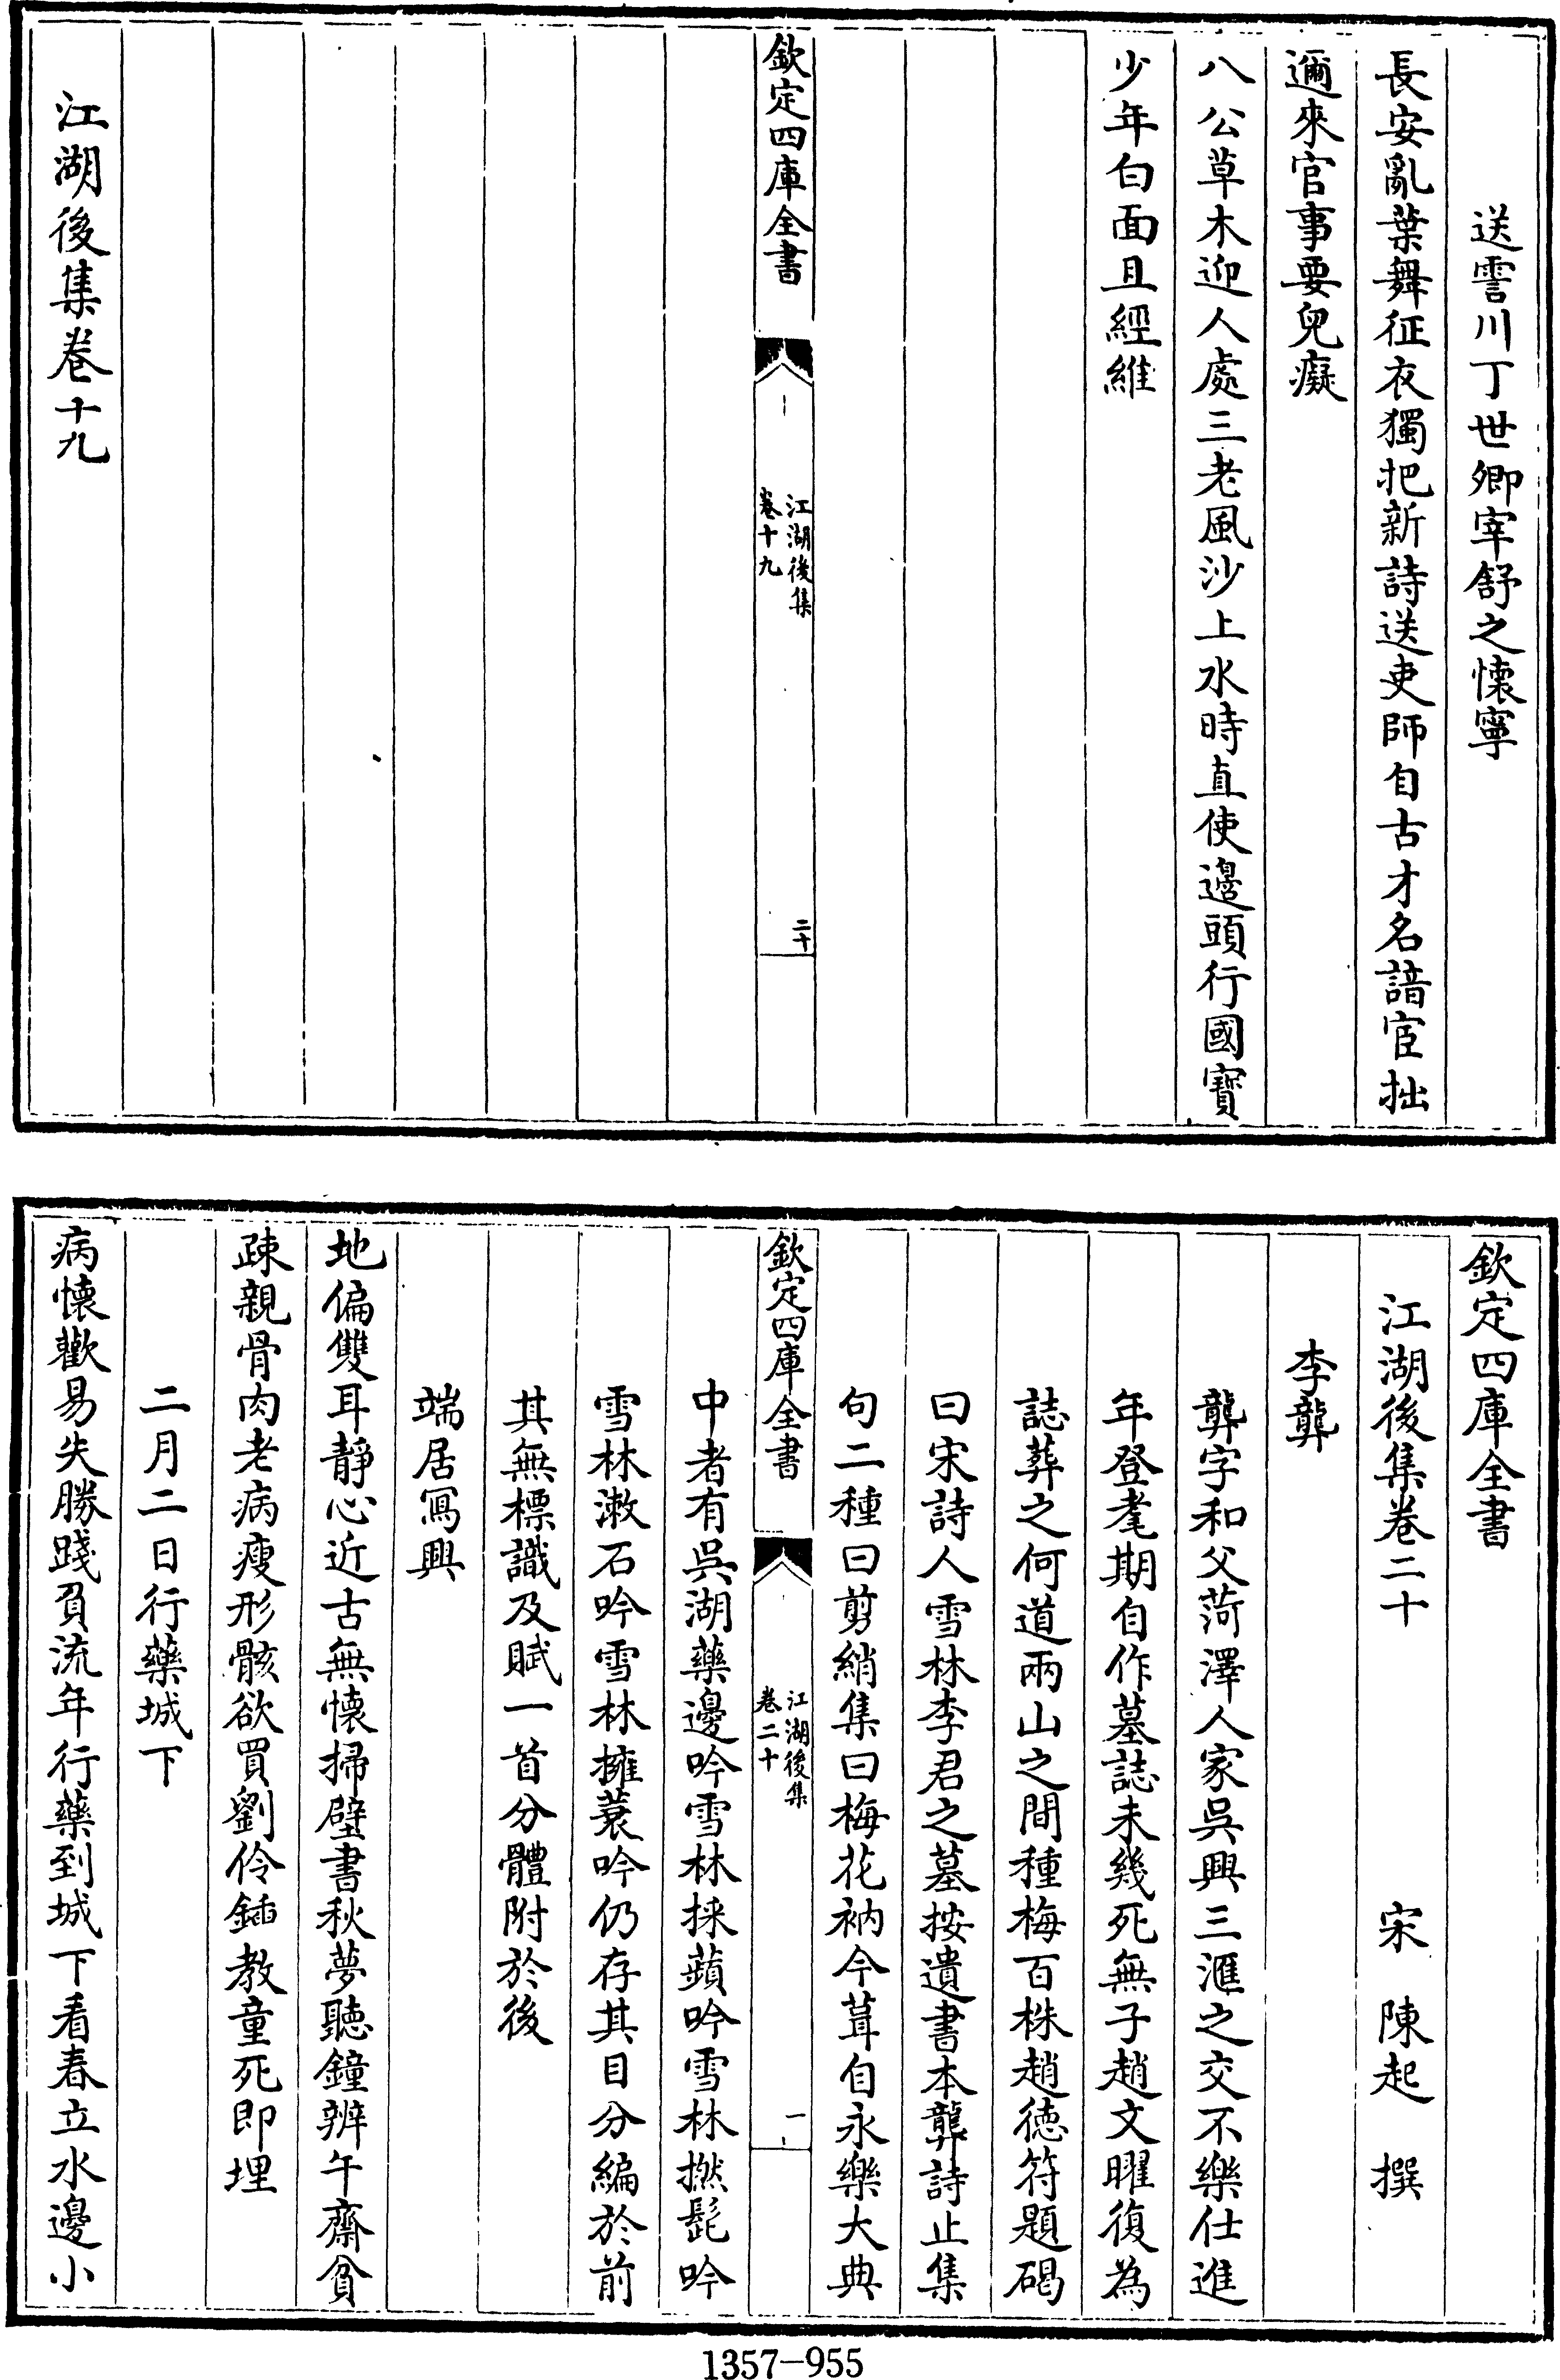 送霅川丁世卿宰舒之懷寧
長安亂葉舞征衣獨把新詩送吏師自古才名諳宦拙
邇來官事要兒癡
八公草木迎人處三老風沙上水時直使邊頭行國寳
少年白面且經維
欽定四庫全書
江湖後集
卷十九
二十
江湖後集卷十九
欽定四庫全書
江湖後集卷二十
宋 陳起 撰
李龏
龏字和父菏澤人家吳興三滙之交不樂仕進
年登耄期自作墓誌未幾死無子趙文曜復為
誌葬之何道兩山之間種梅百株趙徳符題碣
曰宋詩人雪林李君之墓按遺書本龏詩止集
句二種曰剪綃集曰梅花衲今葺自永樂大典
欽定四庫全書
江湖後集
卷二十
一
中者有吳湖藥邊吟雪林採蘋吟雪林撚髭吟
雪林漱石吟雪林擁蓑吟仍存其目分編於前
其無標識及賦一首分體附於後
端居寫興
地偏雙耳靜心近古無懷掃壁書秋夢聽鐘辨午齋貧
疎親骨肉老病瘦形骸欲買劉伶鍤教童死即埋
二月二日行藥城下
病懷歡易失勝踐負流年行藥到城下看春立水邊小
1357-955